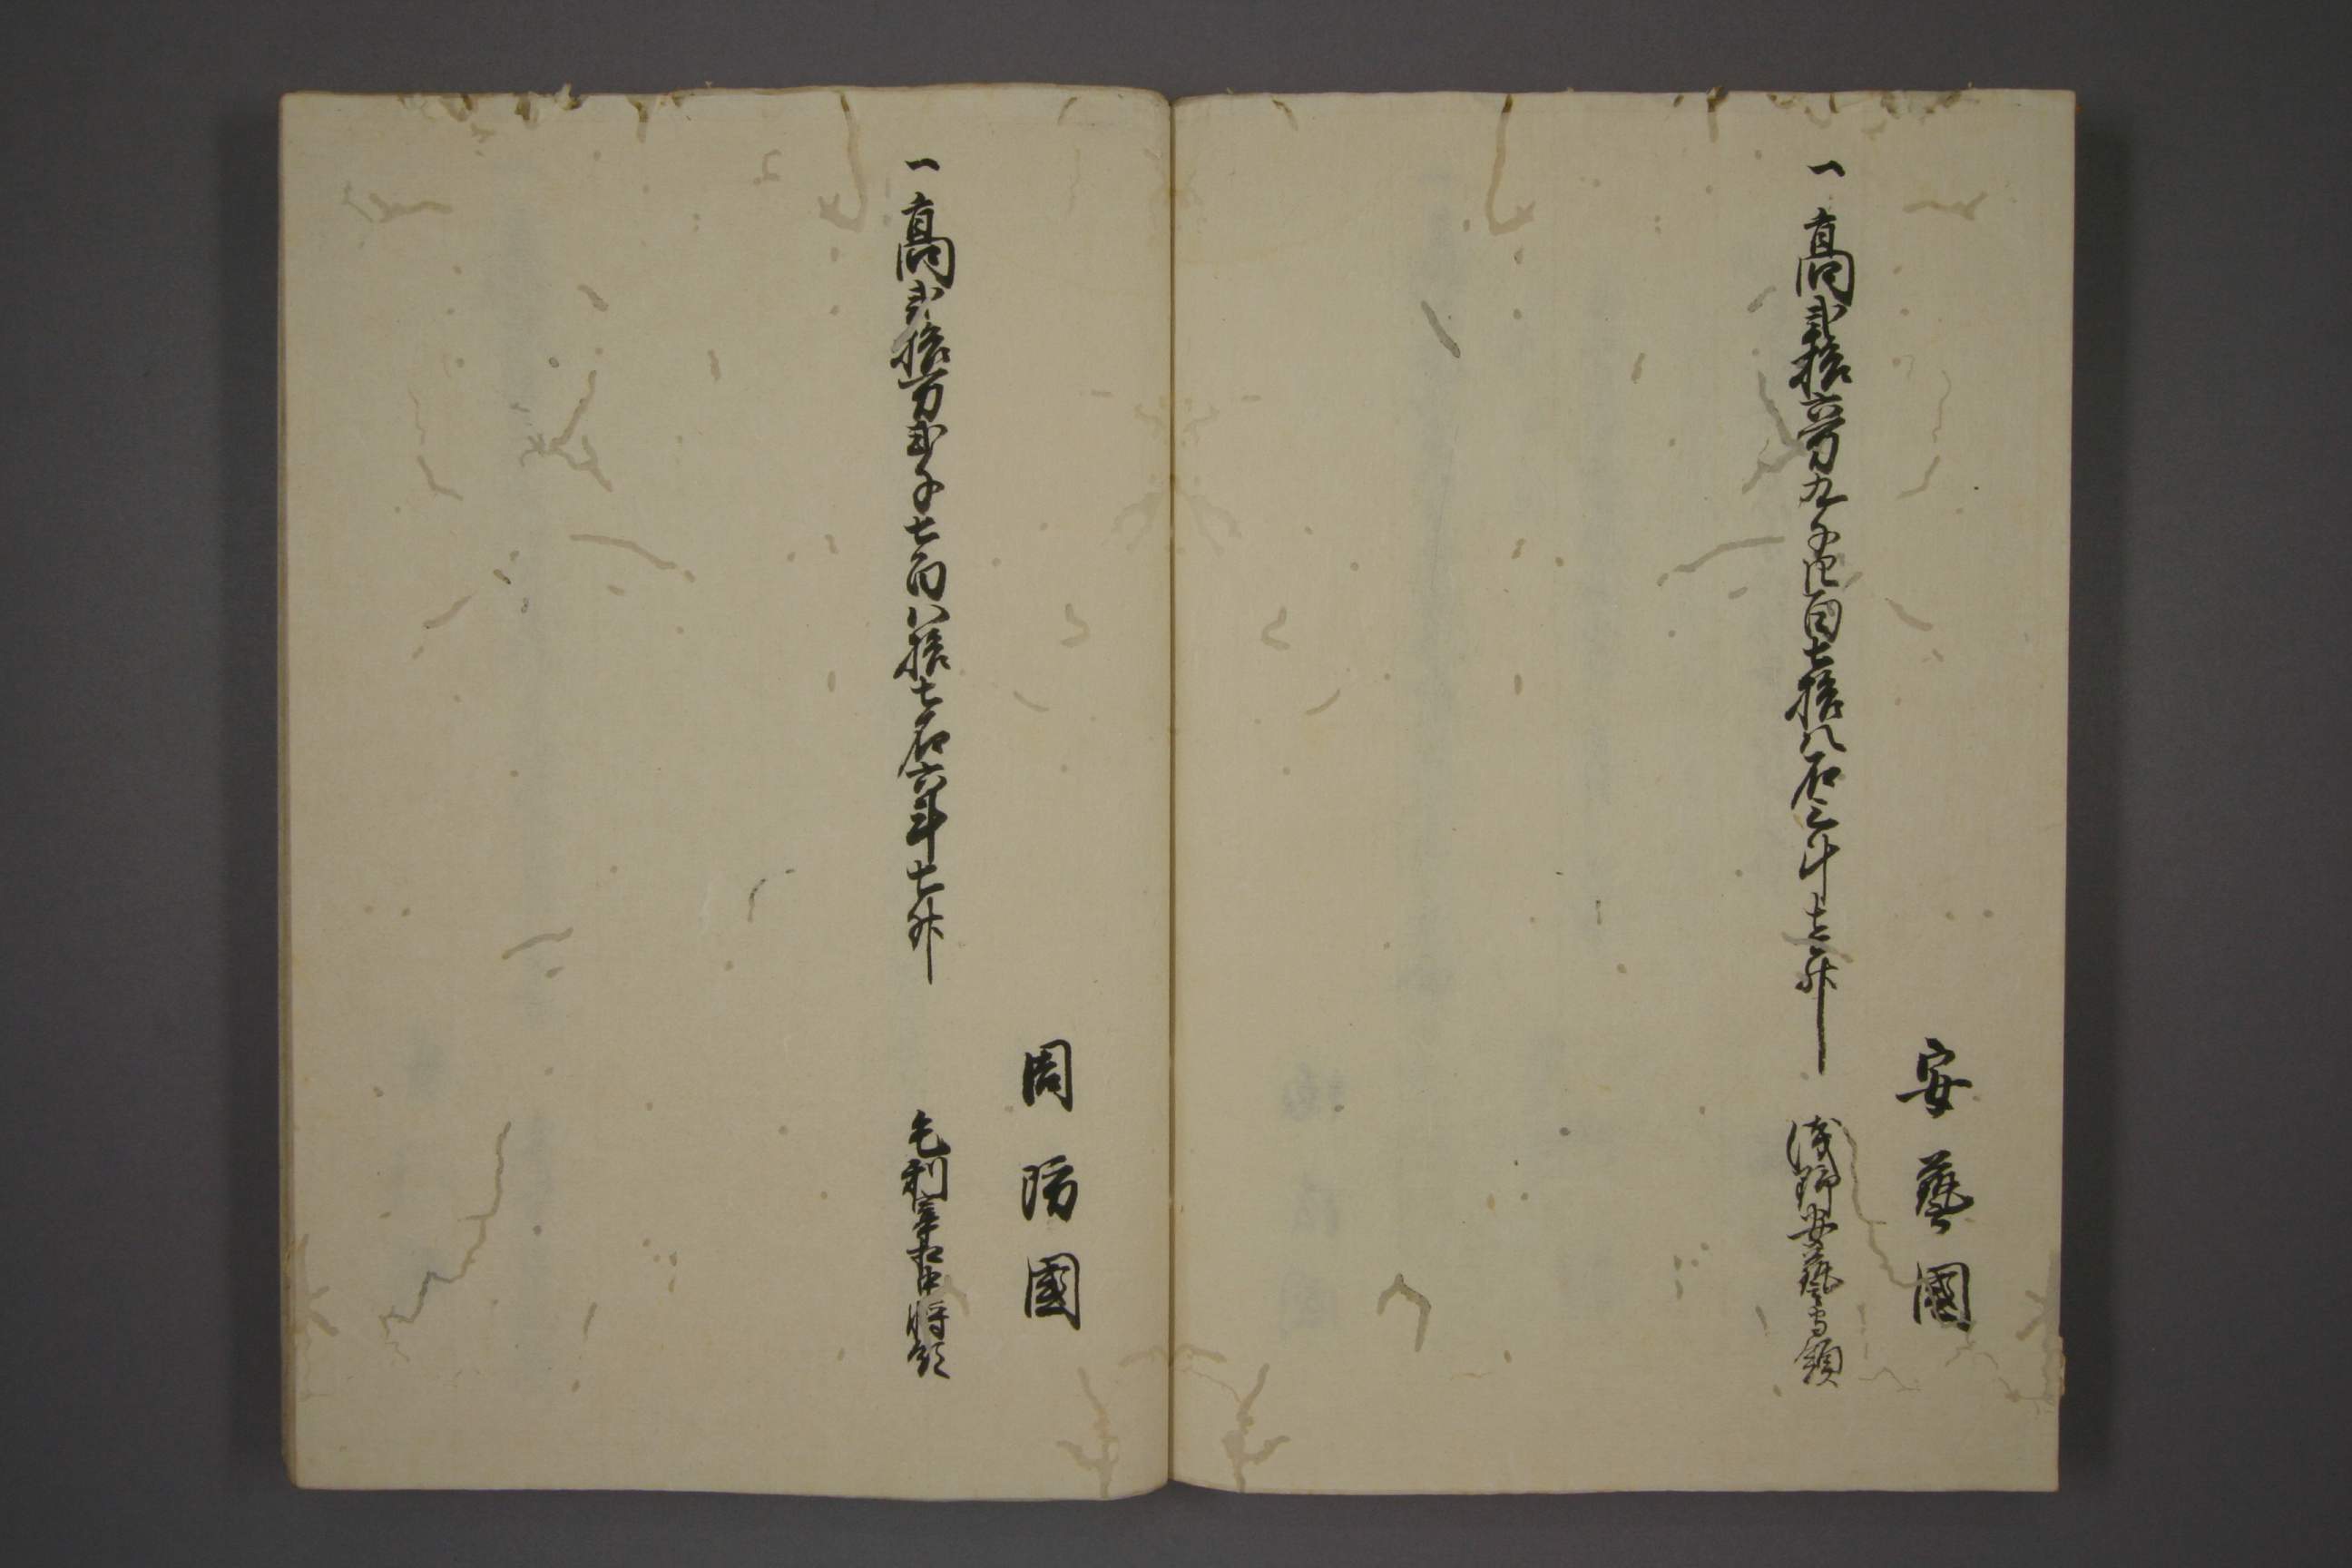 安藝國
一高弐拾六万九千四百七拾八石三斗七升
浅野安藝守領
周防國
一高弐拾万弐千七百八拾七石六斗七升
毛利宰相中将領